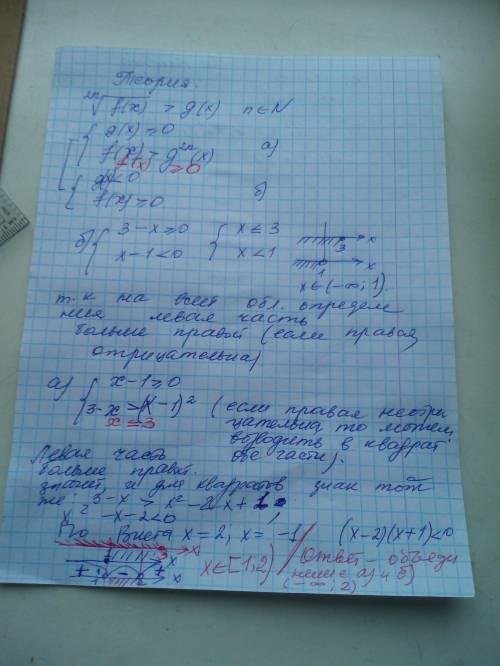 Теория.
2n√f(x) > g(x) n ∈ N
g(x) ≥ 0
f(x) > g²ⁿ(x) а)
f(x) ≥ 0
g(x) < 0 б)
f(x) ≥ 0
б) { 3-x ≥ 0 { x ≤ 3
x-1 < 0 x < 1
3 x
1 x
x ∈ (-∞; 1)
т.к на всей обл. определе
ния левая часть
больше правой (если правая
отрицательна)
а) { x-1 ≥ 0
3-x > (x-1)² (если правая неотри
x ≤ 3 цательна то можем
возводить в квадрат
обе части).
Левая часть
больше правой.
значит, и для квадратов знак тот
же: 3-x > x² - 2x + 1
x² - x - 2 < 0 ;
По Виета x = 2; x = -1 (x-2)(x+1) < 0
x ∈ [1; 2) / Ответ - объеди
нение а) и б)
(-∞; 2)